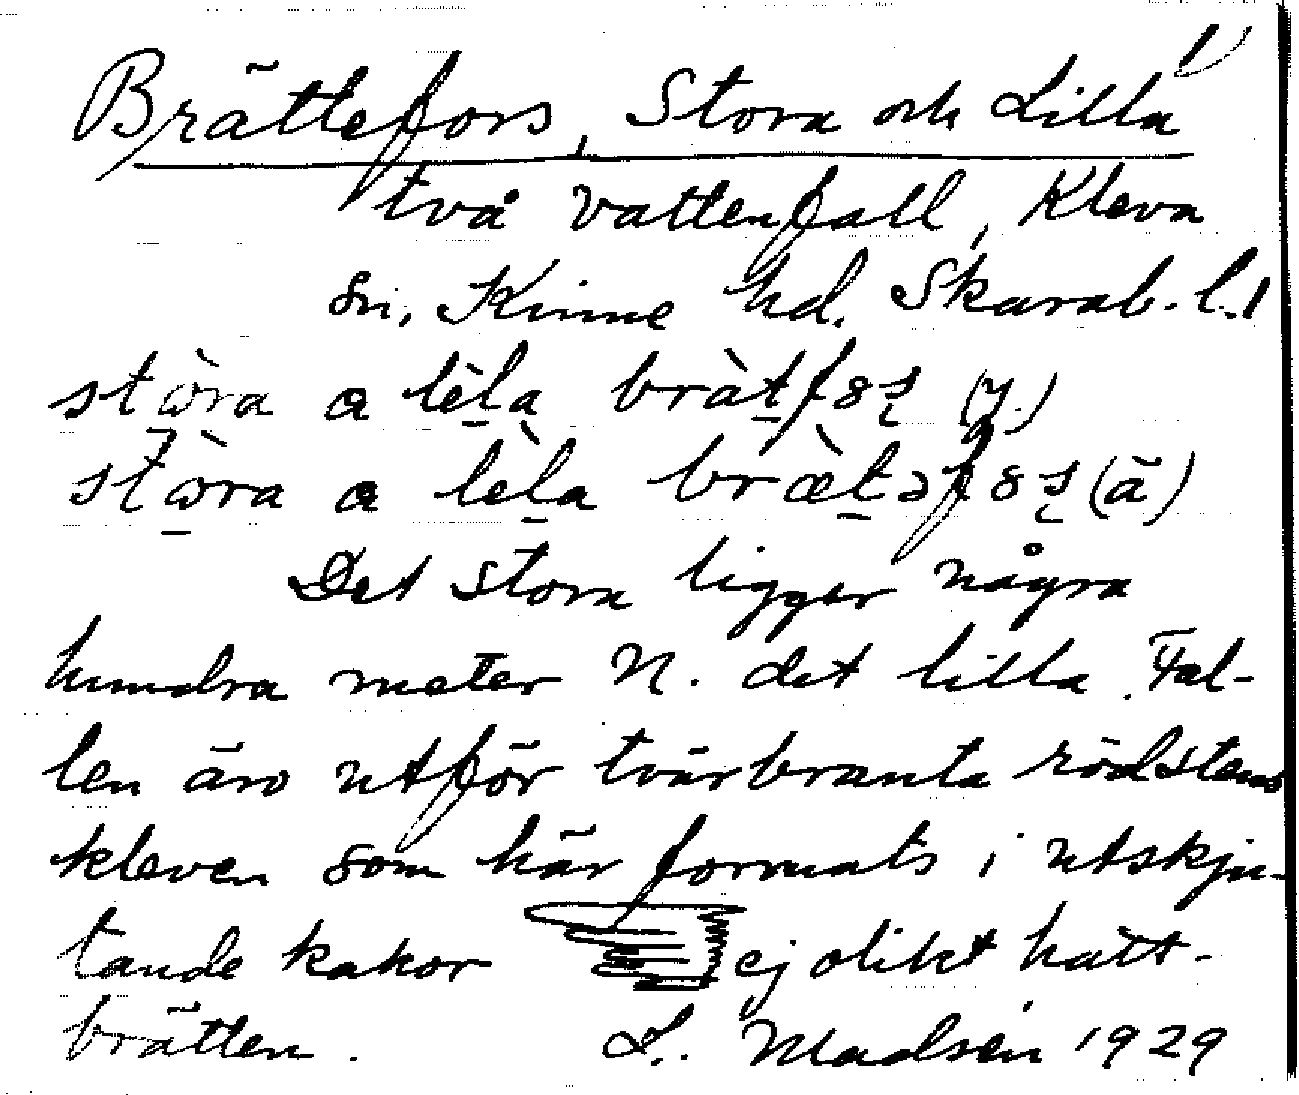 1)
Brättefors, Stora och Lilla
två vattenfall, Kleva
sn, Kinne hd. Skarab. l.
stòra a lèla
stòra a lèla (ä)
Det stora ligger några
hundra meter N. det lilla. Fal-
len äro utför tvärbranta rödstens
kleven som här formats i utskju-
tande kakor ej olikt hatt-
brätten. L. Madsén 1929